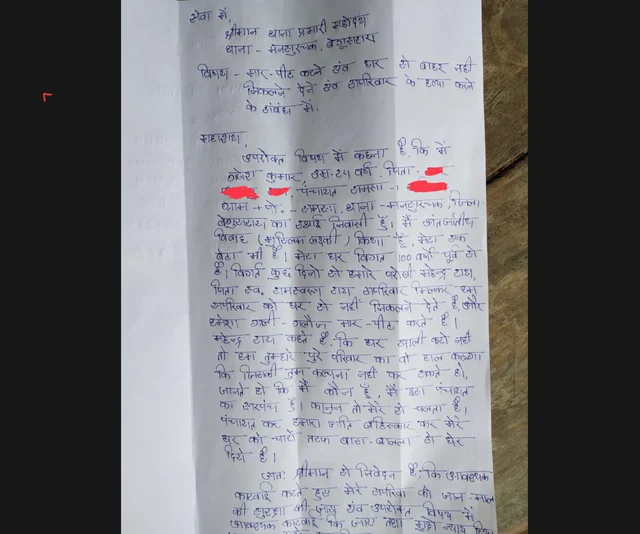 सेवा में,
श्रीमान थाना प्रभारी महोदय
थाना - मंसूरचक, बेगूसराय
विषय - मार-पीट करने एवं घर से बाहर नहीं
निकलने देने एवं सपरिवार के हत्या करने
के संबंध में.
महाशय,
उपरोक्त विषय में कहना है, कि मैं
कुमार, उम्र-24 वर्ष, पिता-
, पंचायत
ग्राम + पो. - थाना - मंसूरचक, जिला-
बेगूसराय का स्थाई निवासी हूँ। मैं अंतर्जातीय
विवाह (मुस्लिम लड़की) किया हूँ, मेरा एक
बेटा भी है। मेरा घर विगत 100 वर्षो पूर्व से
है। विगत कुछ दिनो से हमारे पड़ोसी महेन्द्र राय,
पिता स्व. रामस्वरूप राय सपरिवार मिलकर हम
सपरिवार को घर से नहीं निकलने देते है, और
हमेशा गाली-गलौज मार-पीट करते है।
महेन्द्र राय कहते है, कि घर खाली करो नहीं
तो हम तुम्हारे पुरे परिवार का वो हाल करूगा
कि जिसकी तुम कल्पना नहीं कर सकते हो,
जानते हो कि मैं कौन हूँ, मैं इस पंचायत
का सरपंच हूँ। कानुन तो मेरे से चलता है।
पंचायत कर हमारा जाति बहिस्कार कर मेरे
घर को चारो तरफ बास-बल्ला से घेर
दिये है।
अतः श्रीमान से निवेदन है, कि आवश्यक
कारवाई करते हुए मेरे सपरिवा को जान माल
की सुरक्षा की जाय एवं उपरोक्त विषय में
आवश्यक कारवाई कि जाय तथा मुझे न्याय